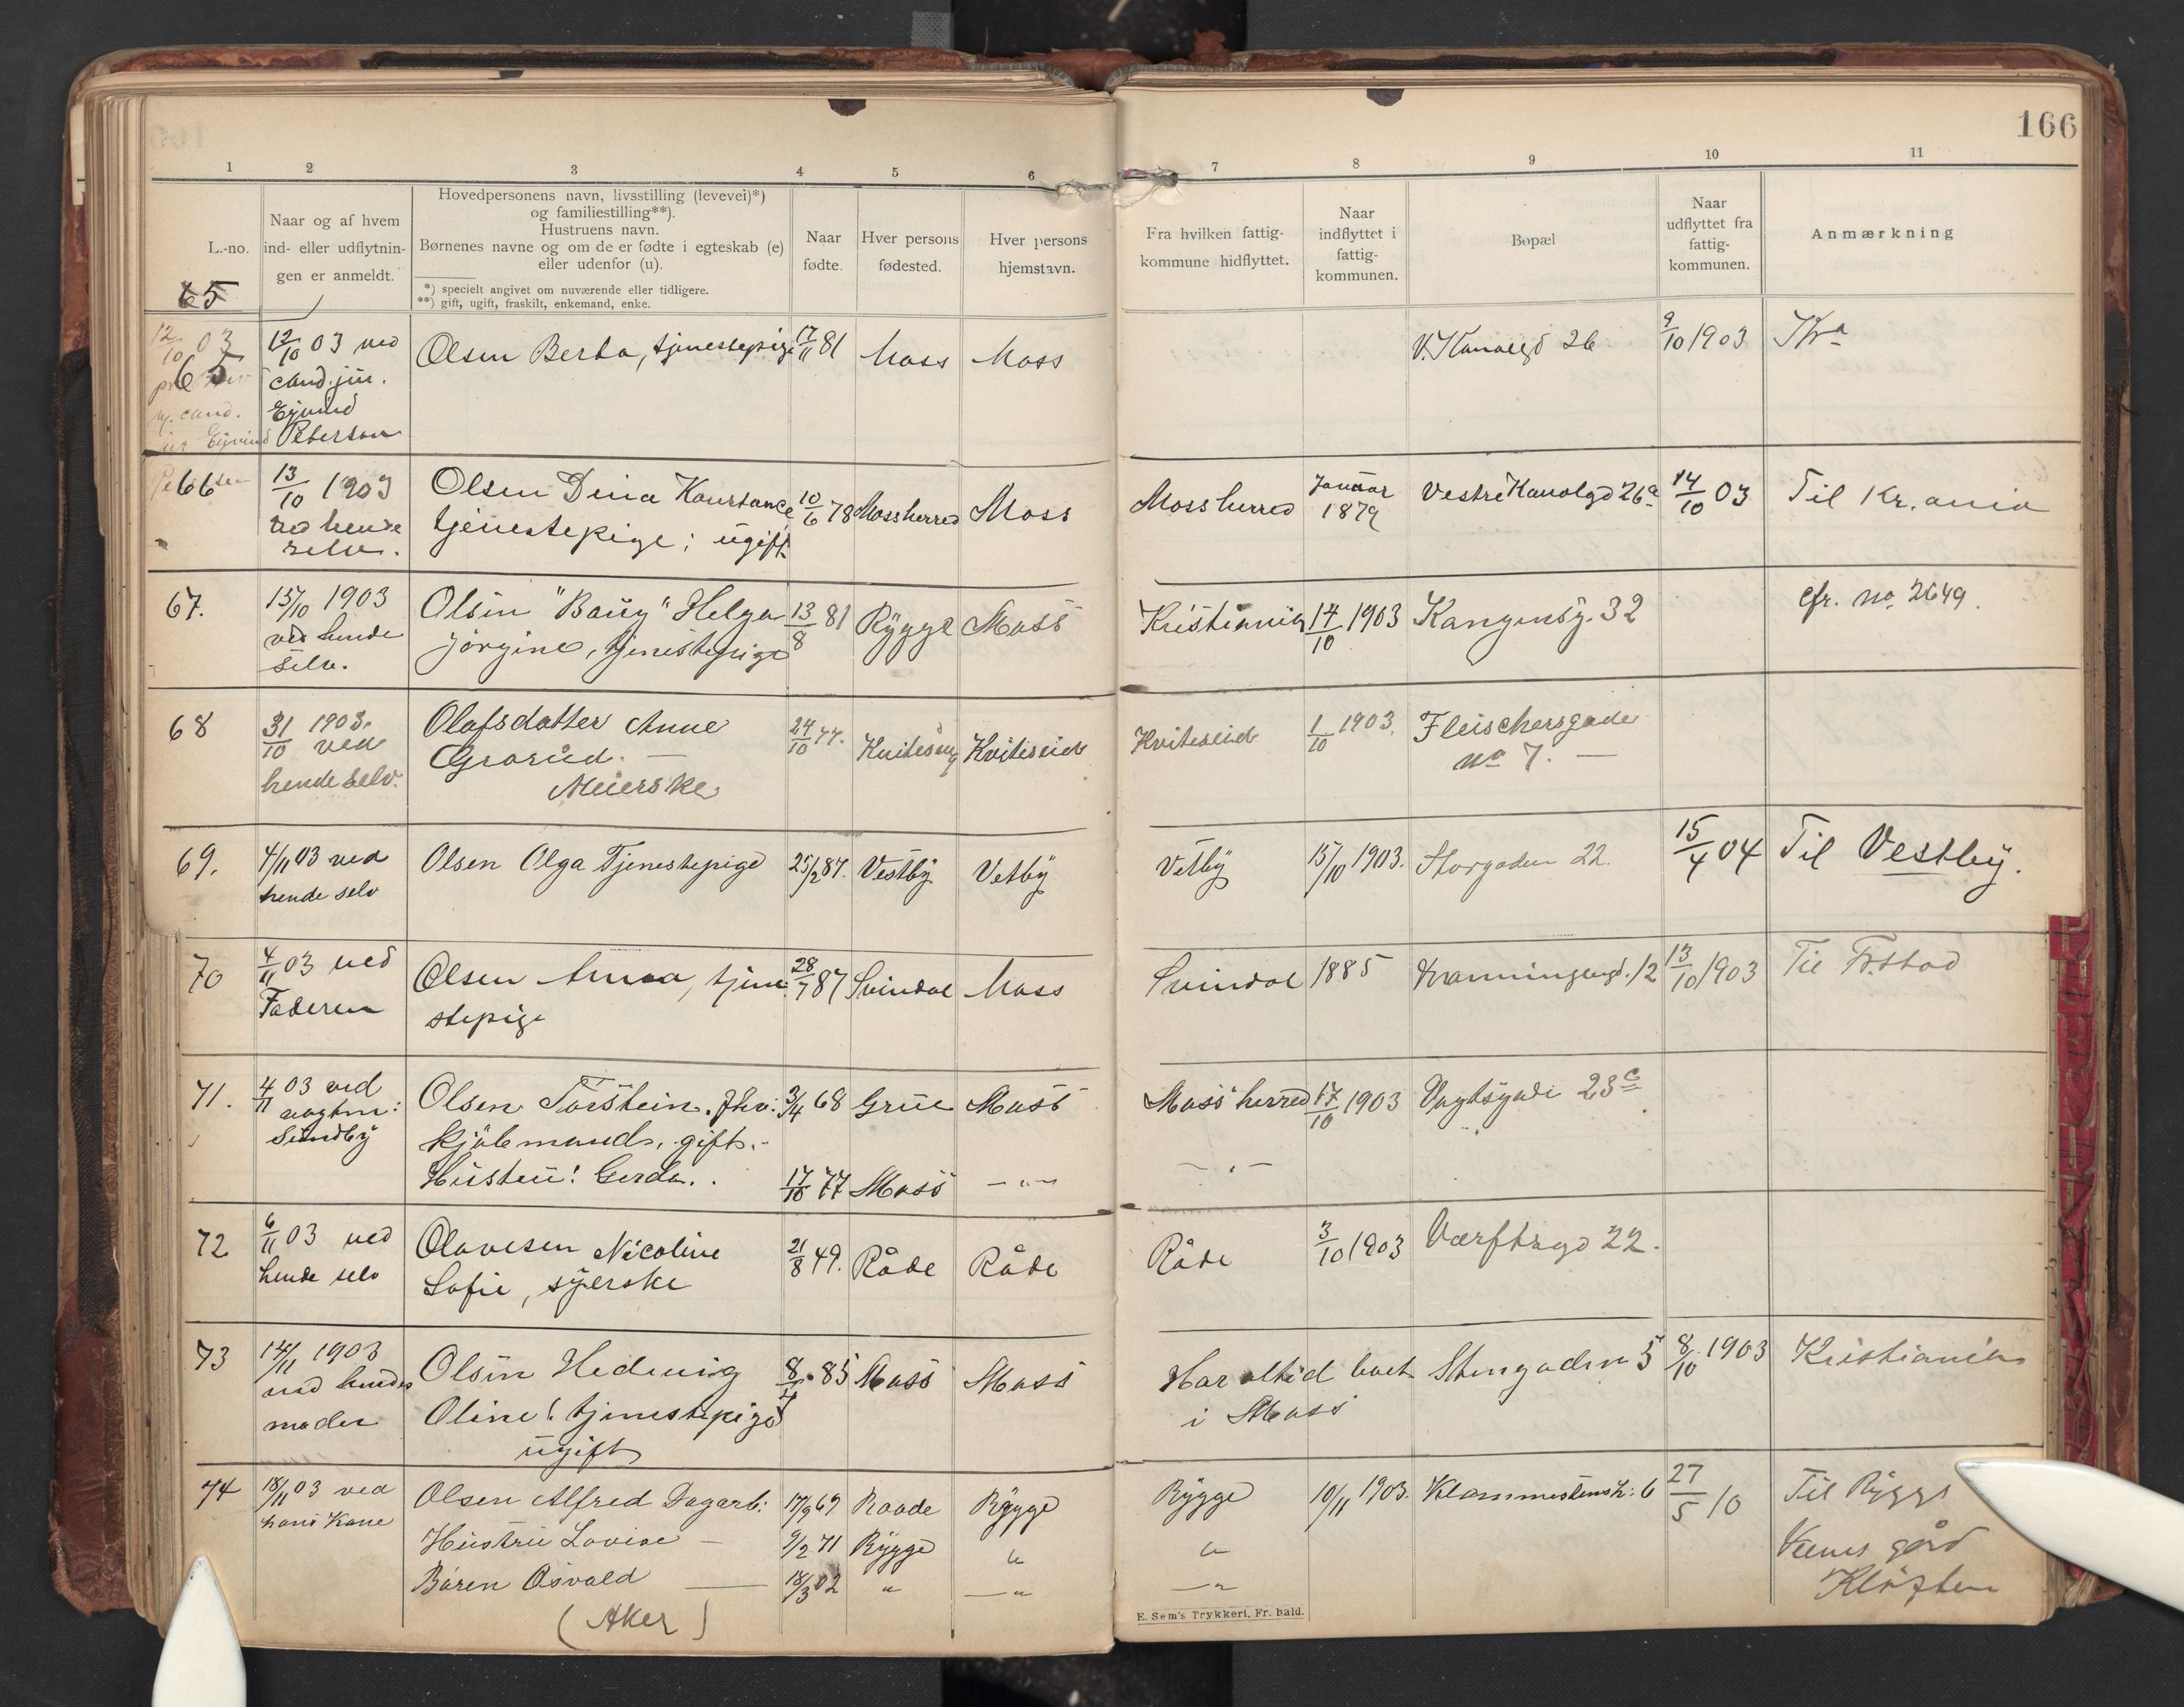 166
1 2 3 4 5 6 7 8 9 10 11
L.-no.
Naar og af hvem
ind- eller udflytnin-
gen er anmeldt.
Hovedpersonens navn, livsstilling (levevei)*)
og familiestilling**).
Hustruens navn.
Børnenes navne og om de er fødte i egteskab (e)
eller udenfor (u).
*) specielt angivet om nuværende eller tidligere.
**) gift, ugift, fraskilt, enkemand, enke.
Naar
fødte.
Hver persons
fødested.
Hver persons
hjemstavn.
Fra hvilken fattig-
kommune hidflyttet.
Naar
indflyttet i
fattig-
kommunen.
Bopæl
Naar
udflyttet fra
fattig-
kommunen.
Anmærkning
65
12/10 03
65 12/10 03 ved Olsen Berta, tjenestepige 17/11 81 Moss Moss V. Kanalgd 26 9/10 1903 Kra
cand. jur.
Ejvind
Petersen
66 13/10 1903 Olsen Dina Konstance 10/6 78 Mossherred Moss Moss herred Januar 1879 Vestre Kanalgd 26a 14/10 03 Til Kr.ania
ved hende tjenestepige; ugift
selv.
67. 15/10 1903 Olsen "Baug" Helga 13/8 81 Rygge Moss Kristiania 14/10 1903 32 cfr. no. 2649.
ved hende Jørgine, tjenestepige
selv.
68 31/10 1903. Olafsdatter Anne 24/10 77. Kviteseid Kviteseid 1/10 1903. Fleischersgade
ved Grorud. — no 7. —
hende selv. Meierske
69. 4/11 03 ved Olsen Olga Tjenestepige 25/2 87. Vestby Vetby Vetby 15/10 1903. Storgaden 22. 15/4 04 Til Vestby.
hende selv
70 4/11 03 ved Olsen Anna, tjene 28/7 87 Svindal Moss Svindal 1885 12 13/10 1903 Til Fr.stad
Faderen stepige
71. 4/11 03 ved Olsen Torstein. 3/4 68 Grue Moss Moss herred 17/10 1903 Vogtsgade 23c
vogtm: kjøbmand, gift.
Sundby Hustru: Gerda. 17/10 77 Moss — " — — " —
72 6/11 03 ved Olavesen Nicoline 21/8 49. Råde Råde Råde 3/10 1903 Værftsgd 22.
hende selv Sofie, syerske
73 14/11 1903 Olsen Hedevig 8/ 85 Moss Moss Har altid boet Stengaden 5 8/10 1903 Kristiania
ved hendes Oline! tjenestepige i Moss
moder ugift
74 18/11 03 ved Olsen Alfred Dagarb: 17/9 69 Raade Rygge Rygge 10/11 1903. 6 27/5 10 Til Rygge
hans Kone Hustru Lovise — 9/2 71 Rygge " " gård
Baren Osvald — 18/3 02 " — " — " Kløften
(Aker)
E. Sem's Trykkeri, Fr. hald.